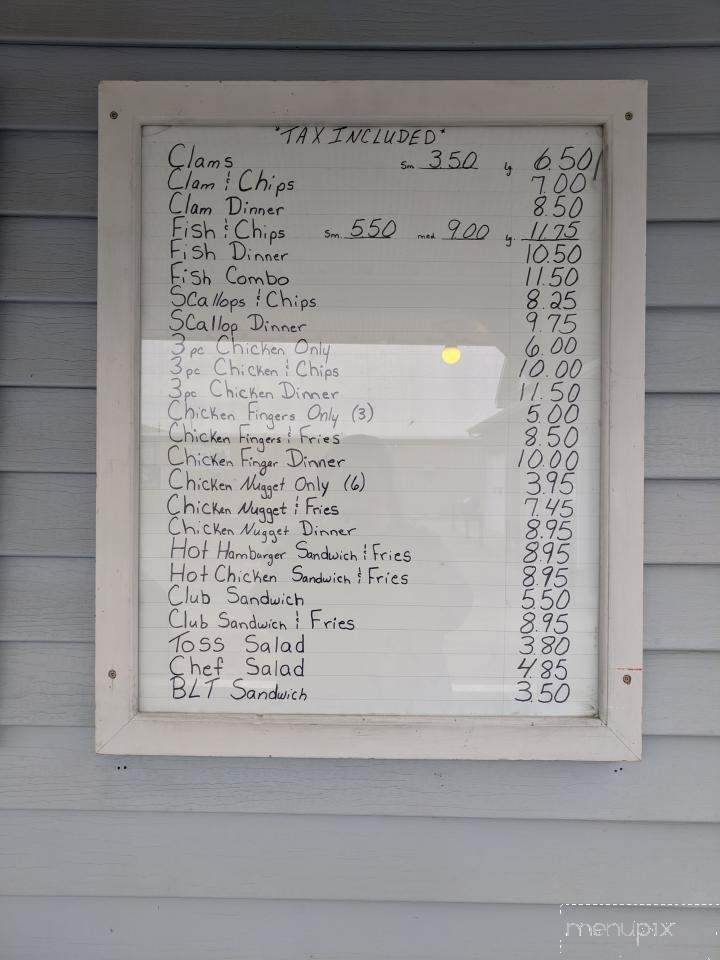 "TAX INCLUDED"
Clams sm. 3.50 lg. 6.50
Clam & Chips 7.00
Clam Dinner 8.50
Fish & Chips sm. 5.50 med 9.00 lg. 11.75
Fish Dinner 10.50
Fish Combo 11.50
Scallops & Chips 8.25
Scallop Dinner 9.75
3 pc Chicken Only 6.00
3 pc Chicken & Chips 10.00
3 pc Chicken Dinner 11.50
Chicken Fingers Only (3) 5.00
Chicken Fingers & Fries 8.50
Chicken Finger Dinner 10.00
Chicken Nugget Only (6) 3.95
Chicken Nugget & Fries 7.45
Chicken Nugget Dinner 8.95
Hot Hamburger Sandwich & Fries 8.95
Hot Chicken Sandwich & Fries 8.95
Club Sandwich 5.50
Club Sandwich & Fries 8.95
Toss Salad 3.80
Chef Salad 4.85
BLT Sandwich 3.50
menupix